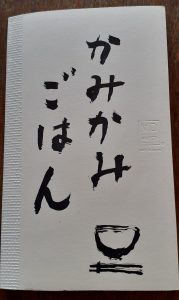 かみかみ
ごはん